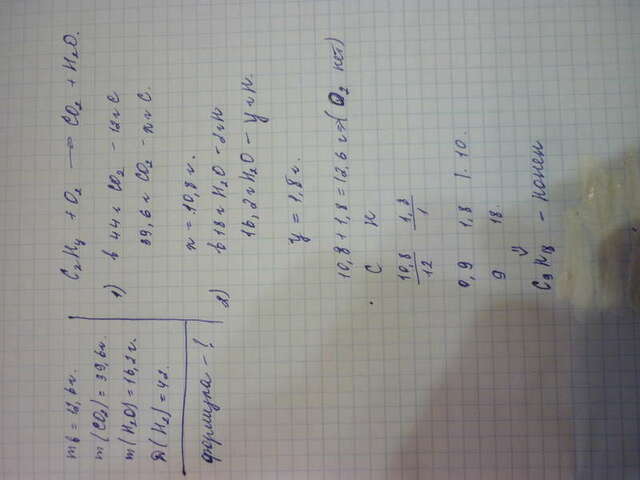 mв = 12,6г.
m(CO2) = 39,6г.
m(H2O) = 16,2г.
D(H2) = 42.
формула - ?
CxHy + O2 → CO2 + H2O.
1) в 44 г CO2 - 12г C
39,6г CO2 - xг C.
x = 10,8г.
2) в 18г H2O - 2гH
16,2г H2O - yг H.
y = 1,8г.
10,8 + 1,8 = 12,6г ⇒ (O2 нет)
C H
10,8 1,8
12 1
0,9 1,8 |·10.
9 18.
⇓
C9H18 - нонен